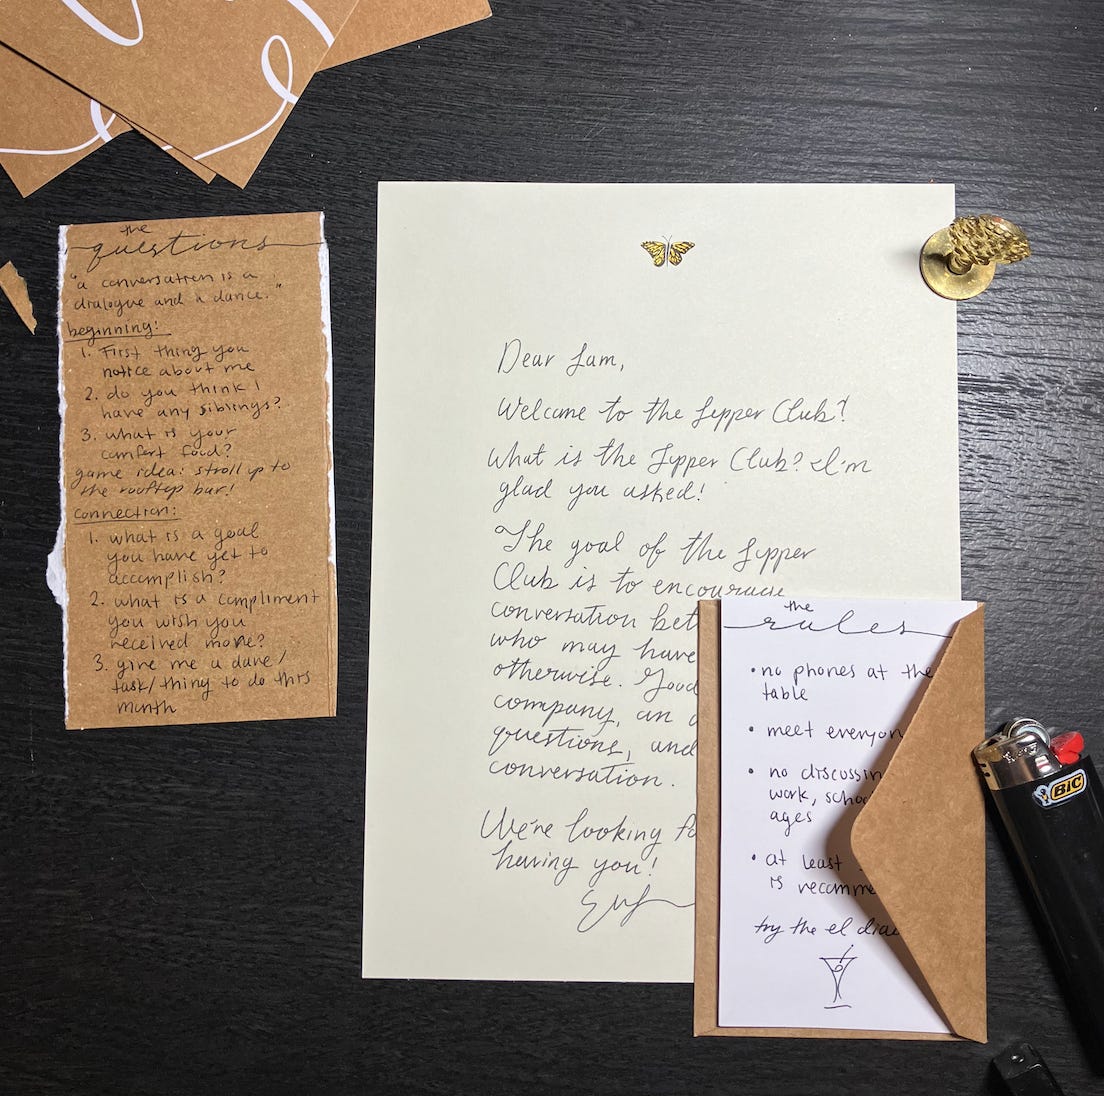 the
questions
"a conversation is a
dialogue and a dance."
beginning:
1. First thing you
notice about me
2. do you think I
have any siblings?
3. what is your
comfort food?
game idea: stroll up to
the rooftop bar!
connection:
1. what is a goal
you have yet to
accomplish?
2. what is a compliment
you wish you
received more?
3. give me a dare/
task/thing to do this
month
Dear Sam,
Welcome to the Supper Club!
What is the Supper Club? I'm
glad you asked!
The goal of the Supper
Club is to encourage
conversation bet
who may have
otherwise. Good
company, an
questions, and
conversation.
We're looking fo
having you!
the
rules
• no phones at the
table
• meet everyon
• no discussin
work, scho
ages
• at least
is recomme
try the el dia
BIC